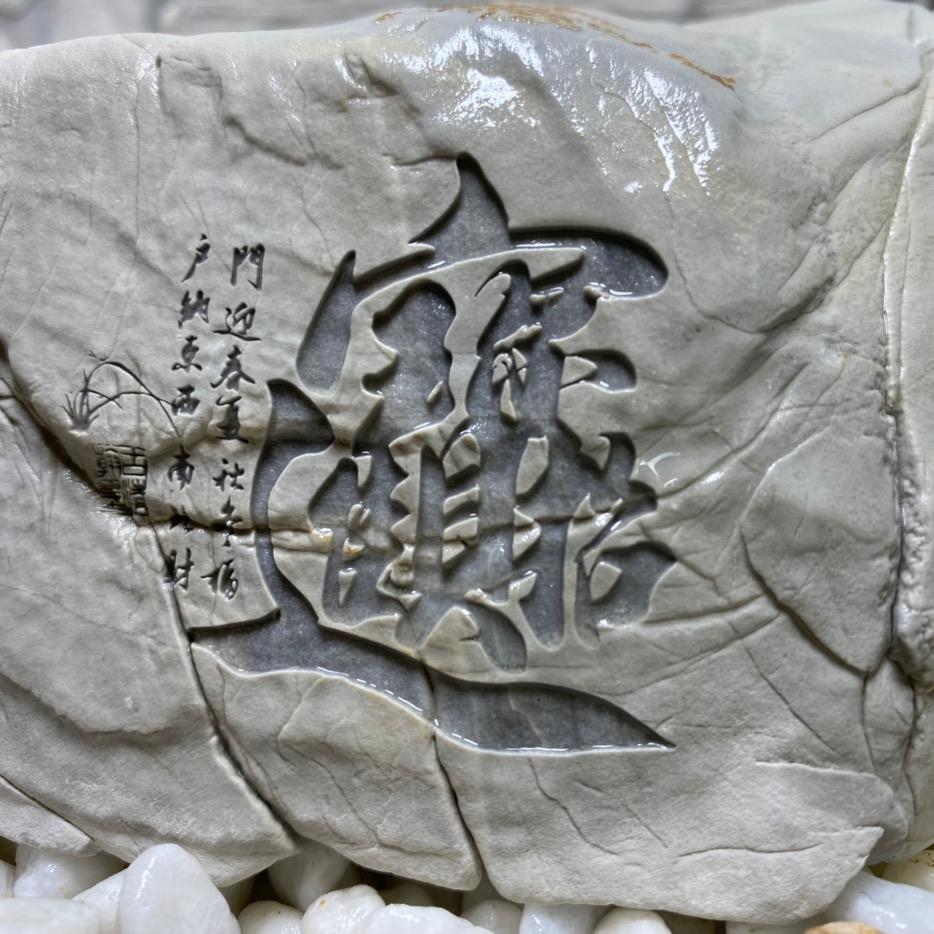 招財進寶
門迎春夏秋冬福
户納東西南北財